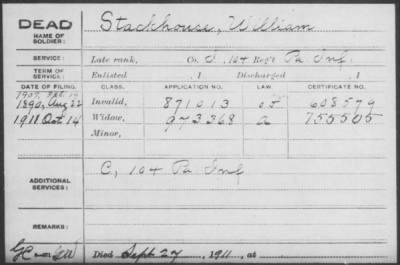 DEAD
NAME OF SOLDIER:
Stackhouse, William
SERVICE:
Late rank, Co. I, 104 Reg't Pa Inf.
TERM OF SERVICE:
Enlisted , 1 Discharged , 1
DATE OF FILING. CLASS. APPLICATION NO. LAW. CERTIFICATE NO.
1890, Aug 22 Invalid, 871013 608579
1911 Oct 14 Widow, 973368 a 755505
Minor,
ADDITIONAL SERVICES:
C, 104 Pa Inf
REMARKS:
Died Sept 27, 1911, at